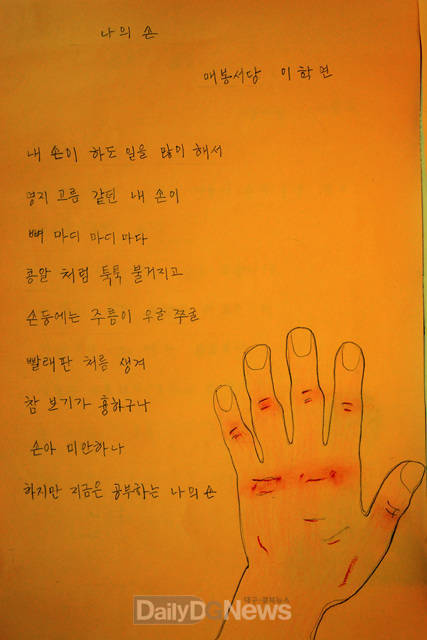 나의 손
매봉서당 이학연
내 손이 하도 일을 많이 해서
명지 고름 같던 내 손이
뼈 마디 마디 마다
콩알 처럼 툭툭 불거지고
손등에는 주름이 우굴 쭈굴
빨래판 처름 생겨
참 보기가 흉하구나
손아 미안하나
하지만 지금은 공부하는 나의 손
대구·경북뉴스
DailyDGNews